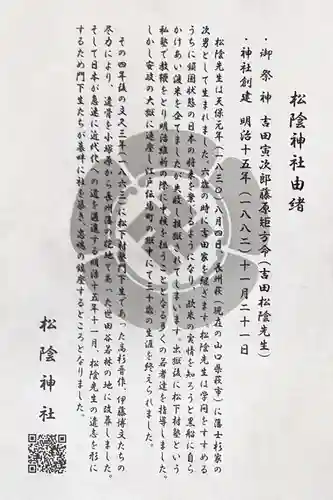 松陰神社由緒
・御祭神 吉田寅次郎藤原矩方命(吉田松陰先生)
・神社創建 明治十五年(一八八二)十一月二十一日
松陰先生は天保元年(一八三〇)八月四日、長州萩(現在の山口県萩市)に藩士杉家の
次男として生まれました。六歳の時に吉田家を継ぎます。松陰先生は学問をすすめる
うちに鎖国状態の日本の将来を案じるようになり、欧米の実情を知ろうと黒船に自ら
かけあい渡米を企てましたが失敗し投獄されてしまいます。出獄後に松下村塾という
私塾で教鞭をとり明治維新の際に中核を担うことになる多くの若者達を指導しました。
しかし安政の大獄に連座し江戸伝馬町の獄中にて三十歳の生涯を終えられました。
その四年後の文久三年(一八六三)に松下村塾門下生であった高杉晋作、伊藤博文たちの
尽力により、遺骨を小塚原から長州藩の控地であった世田谷若林の地に改葬しました。
そして日本が急速に近代化への道を邁進する明治十五年十一月、松陰先生の遺志を形に
するため門下生たちが墓畔に社を築き、忠魂の鎮座するところとなりました。
松陰神社